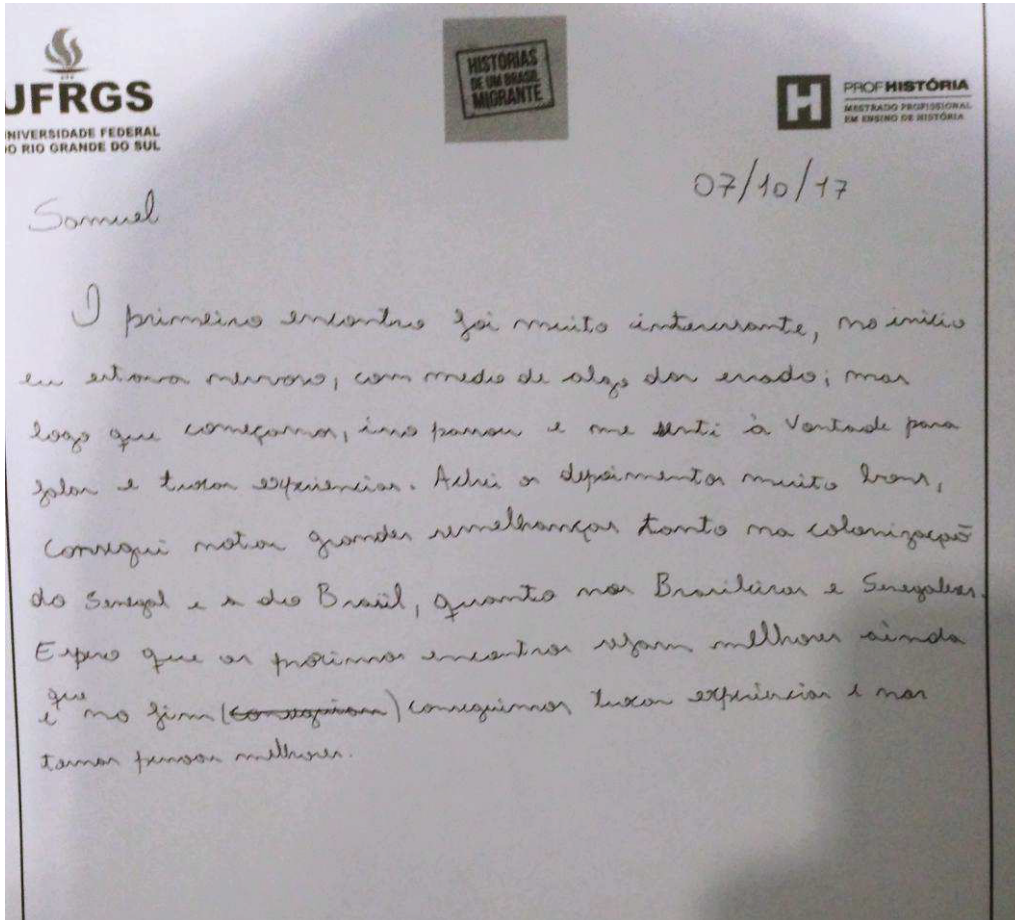 UFRGS
UNIVERSIDADE FEDERAL
DO RIO GRANDE DO SUL
HISTÓRIAS
DE UM BRASIL
MIGRANTE
PROFHISTÓRIA
MESTRADO PROFISSIONAL
EM ENSINO DE HISTÓRIA
07/10/17
Samuel
O primeiro encontro foi muito interessante, no início
eu estava nervoso, com medo de algo dar errado; mas
logo que começamos, isso passou e me senti à vontade para
falar e trocar experiencias. Achei os depoimentos muito bons,
consegui notar grandes semelhanças tanto na colonização
do Senegal e a do Brasil, quanto nos Brasileiros e Senegaleses.
Espero que os proximos encontros sejam melhores ainda
e que no fim (conseguiram) conseguimos trocar experiências e nos
tornar pessoas melhores.